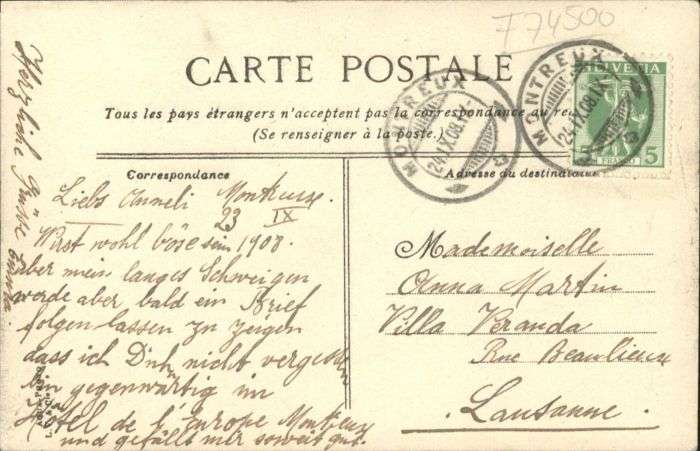 F74500
CARTE POSTALE
Tous les pays étrangers n'acceptent pas la correspondance au re
(Se renseigner à la poste.)
MONTREUX
24.IX.08.IX-
MONTREUX
24.IX.08.IX-
HELVETIA
5 FRANCO 5
Correspondance
Liebs Anneli Montreux.
23 IX
1908.
Wirst wohl böse sein
über mein langes Schweigen
werde aber bald ein Brief
folgen lassen zu zeigen
dass ich Dich nicht vergessen
bin gegenwärtig im
Hotel de l'Europe Montreux
und gefällt mir soweit gut.
Herzliche Grüsse
Adresse du destinataire
Mademoiselle
Anna Martin
Villa Veranda
Rue Beaulieux
Lausanne.